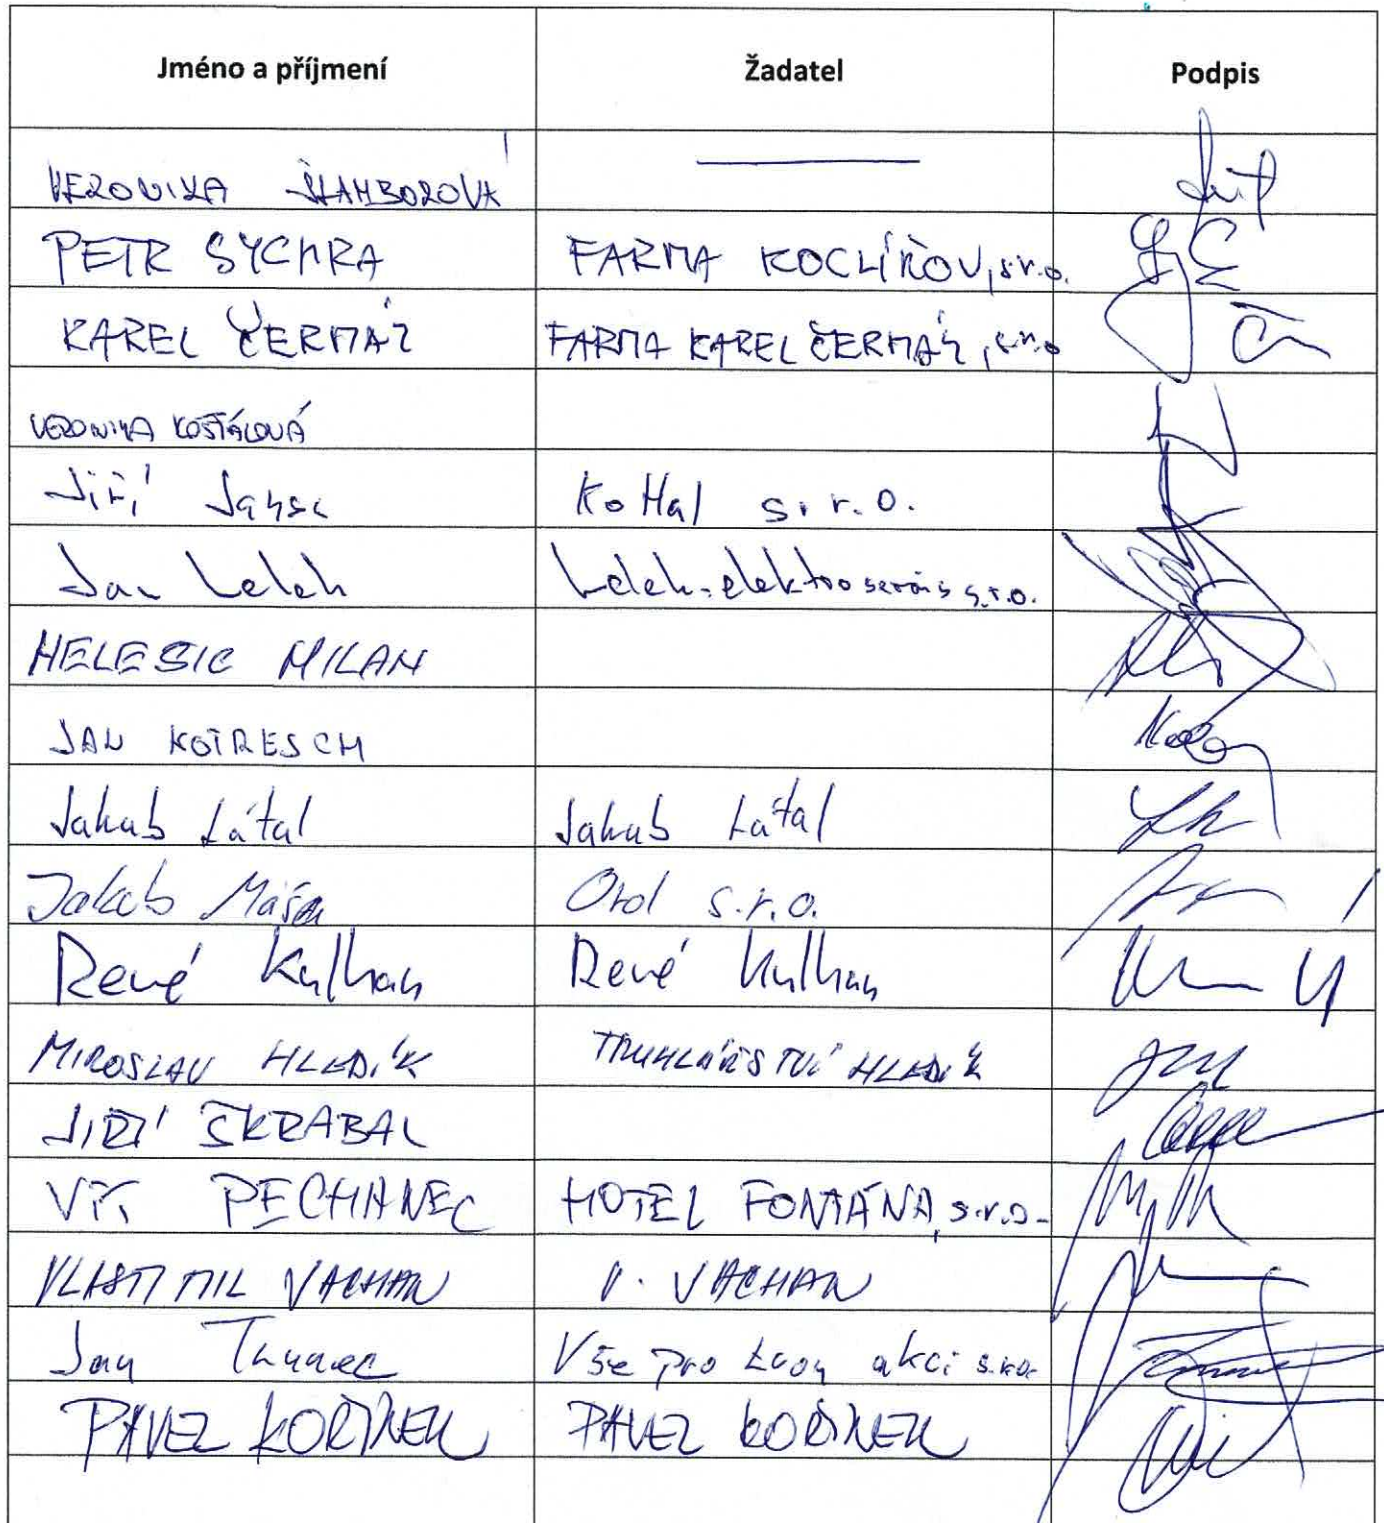 Jméno a příjmení Žadatel Podpis
VERONIKA ŠTAMBOROVÁ
PETR SYCHRA FARMA KOCLÍŘOV, s.r.o.
KAREL ČERMÁK FARMA KAREL ČERMÁK, s.r.o
VERONIKA KOŠŤÁLOVÁ
Jiří KoHal s.r.o.
Jan Lelek Lelek-elektroservis s.r.o.
HELESIC MILAN
JAN KOTRESCH
Jakub Látal Jakub Látal
Jakub Máša s.r.o.
René Kulhan René Kulhan
MIROSLAV HLADÍK TRUHLÁŘSTVÍ HLADÍK
JIŘÍ ŠKRABAL
VÍT PECHANEC HOTEL FONTÁNA, s.r.o.
VLASTIMIL VACHAN V. VACHAN
Jan Vše pro Tvou akci s.r.o.
PAVEL KOŘÍNEK PAVEL KOŘÍNEK